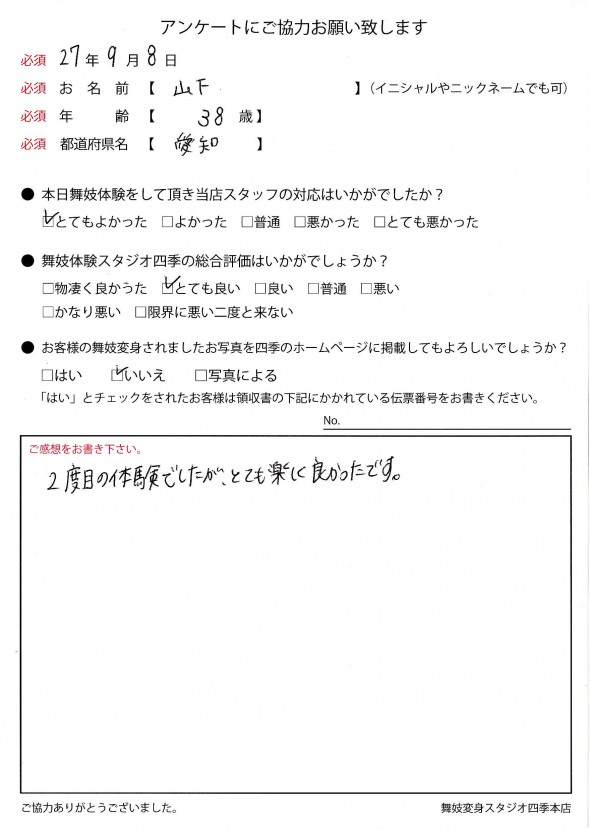 アンケートにご協力お願い致します
必須 27年9月8日
必須 お名前【 山下 】（イニシャルやニックネームでも可）
必須 年齢【 38歳】
必須 都道府県名【 愛知 】
● 本日舞妓体験をして頂き当店スタッフの対応はいかがでしたか？
☑とてもよかった □よかった □普通 □悪かった □とても悪かった
● 舞妓体験スタジオ四季の総合評価はいかがでしょうか？
□物凄く良かうた ☑とても良い □良い □普通 □悪い
□かなり悪い □限界に悪い二度と来ない
● お客様の舞妓変身されましたお写真を四季のホームページに掲載してもよろしいでしょうか？
□はい ☑いいえ □写真による
「はい」とチェックをされたお客様は領収書の下記にかかれている伝票番号をお書きください。
No.
ご感想をお書き下さい。
2度目の体験でしたが、とても楽しく良かったです。
ご協力ありがとうございました。 舞妓変身スタジオ四季本店